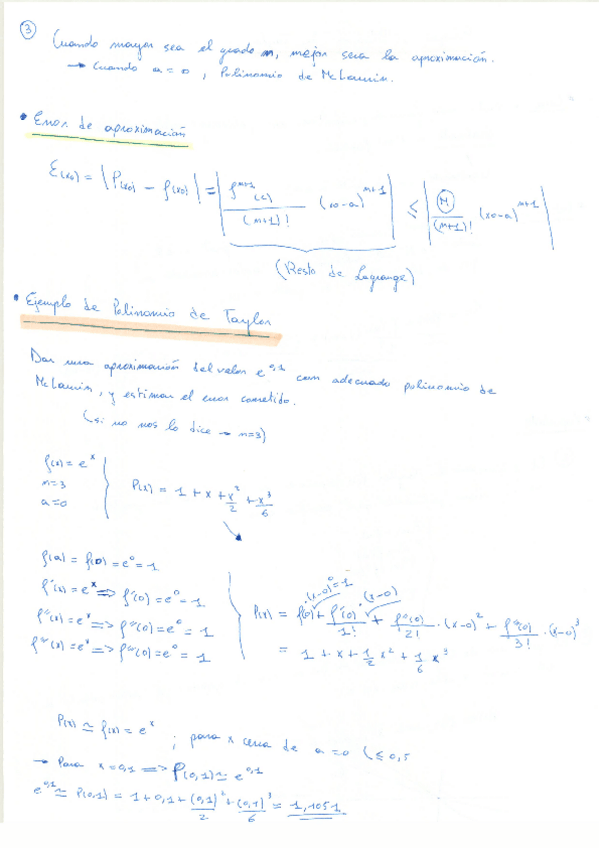 ③
Cuando mayor sea el grado n, mejor sera la aproximación.
→ Cuando a = 0, Polinomio de McLaurin.
• Error de aproximación
E(x0) = |P(x0) − f(x0)| = |f^(n+1)(c) / (n+1)! (x0−a)^(n+1)| ≤ |M / (n+1)! (x0−a)^(n+1)|
(Resto de Lagrange)
• Ejemplo de Polinomio de Taylor
Dar una aproximación del valor e^0,1 con adecuado polinomio de
McLaurin, y estimar el error cometido.
(si no nos lo dice → n=3)
f(x) = e^x
n=3
a=0
P(x) = 1 + x + x^2/2 + x^3/6
f(a) = f(0) = e^0 = 1
f'(x) = e^x => f'(0) = e^0 = 1
f''(x) = e^x => f''(0) = e^0 = 1
f'''(x) = e^x => f'''(0) = e^0 = 1
·(x−0)^0=1 ·(x−0)
P(x) = f(0) + f'(0)/1! + f''(0)/2! ·(x−0)^2 + f'''(0)/3! ·(x−0)^3
= 1 + x + 1/2 x^2 + 1/6 x^3
P(x) ≃ f(x) = e^x ; para x cerca de a=0 (≤ 0,5
→ Para x=0,1 => P(0,1) ≃ e^0,1
e^0,1 ≃ P(0,1) = 1 + 0,1 + (0,1)^2/2 + (0,1)^3/6 = 1,1051